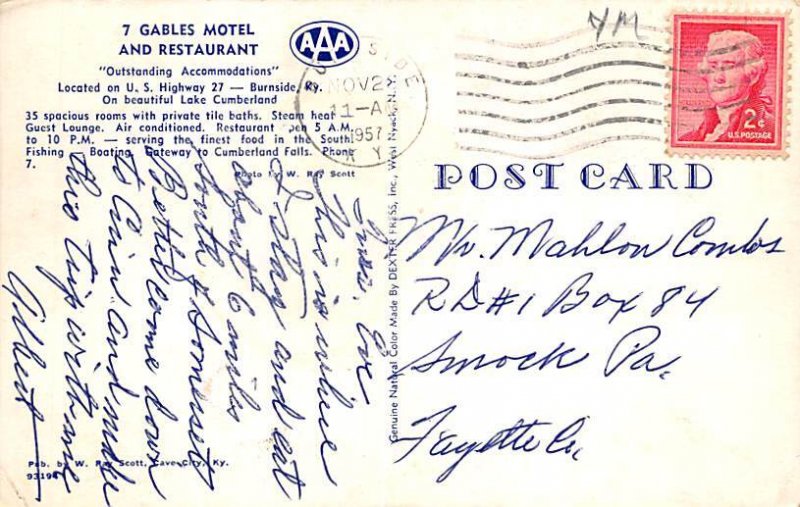 7 GABLES MOTEL
AND RESTAURANT
"Outstanding Accommodations"
Located on U. S. Highway 27 — Burnside, Ky.
On beautiful Lake Cumberland
35 spacious rooms with private tile baths. Steam heat
Guest Lounge. Air conditioned. Restaurant open 5 A.M.
to 10 P.M. — serving the finest food in the South
Fishing — Boating. Gateway to Cumberland Falls. Phone
7.
Photo by W. Ray Scott
AAA
SIDE
NOV 2
11-A
1957
KY
YM
2¢
U.S. POSTAGE
POST CARD
Genuine Natural Color Made By DEXTER PRESS, Inc., West Nyack, N.Y.
This is where
I stay and eat
about 6 miles
south of Somerset
Better come down
to Cinn and make
this trip with me
Gilbert
Mr. Mahlon Combs
RD#1 Box 84
Smock Pa.
Fayette Co.
Pub. by W. Ray Scott, Cave City, Ky.
93194